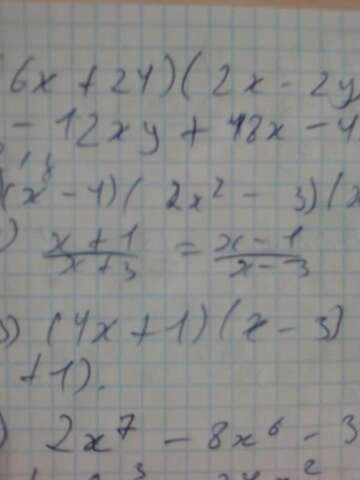 6x + 24)(2x - 2y
- 12xy + 48x - 4
)(x - 1)( 2x² - 3)(x
) (x + 1)/(x + 3) = (x - 1)/(x - 3)
) (4x + 1)(x - 3)
+ 1).
) 2x⁷ - 8x⁶ - 3